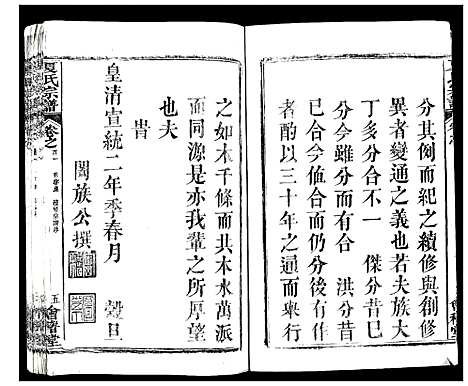 分其例而紀之續修與創修
異者變通之義也若夫族大
丁多分合不一　傑分昔
分今雖分而有合　洪分昔
已合今合而仍分爰集合族
酌以三十年之通而舉行
之如木千條而共本水萬派
而同源是亦我輩之所厚望
也夫
旹
皇清宣統二年季春月　穀旦
闔族公撰
夏氏宗譜
卷之
五
會稽堂